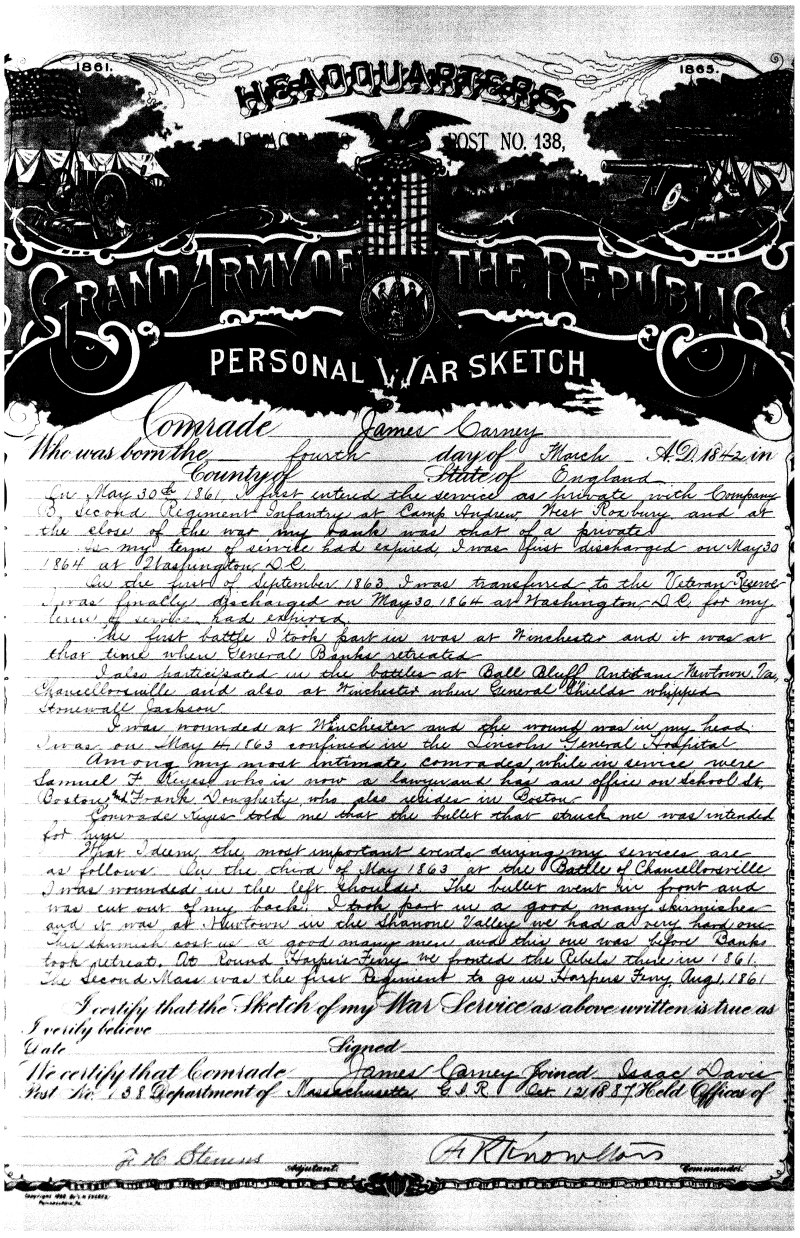 1861.
1865.
HEADQUARTERS
POST NO. 138,
GRAND ARMY OF THE REPUBLIC
PERSONAL WAR SKETCH
Comrade James Carney
Who was born the fourth day of March A.D. 1842 in
County of State of England
On May 30th, 1861, I first entered the service as private with Company
B, Second Regiment Infantry at Camp Andrew, West Roxbury and at
the close of the war my rank was that of a private
As my term of service had expired, I was first discharged on May 30
1864 at Washington, D.C.
On the first of September 1863 I was transferred to the Veteran Reserve
I was finally discharged on May 30 1864 at Washington, D.C. for my
term of service had expired.
The first battle I took part in was at Winchester and it was at
that time when General Banks retreated
I also participated in the battles at Ball Bluff, Antitam, Newtown, Va,
Chancellorsville and also at Winchester when General Shields whipped
Stonewall Jackson
I was wounded at Winchester and the wound was in my head
I was on May 4, 1863 confined in the Lincoln General Hospital
Among my most intimate comrades while in service were
Samuel F. Keyes who is now a lawyer and has an office on School St,
Boston, and Frank Dougherty, who also resides in Boston
Comrade Keyes told me that the bullet that struck me was intended
for him
What I deem the most important events during my services are
as follows. On the third of May 1863 at the Battle of Chancellorsville
I was wounded in the left shoulder. The bullet went in front and
was cut out of my back. I took part in a good many skirmishes
and it was at Newtown in the Shanone Valley we had a very hard one
This skirmish cost us a good many men and this one was before Banks
took retreat. At Round Harpers Ferry we fronted the Rebels there in 1861.
The Second Mass was the first Regiment to go in Harpers Ferry, Aug 1, 1861
I certify that the Sketch of my War Service as above written is true as
I verily believe
Date Signed
We certify that Comrade James Carney Joined Isaac Davis
Post No. 138 Department of Massachusetts G.A.R. Oct. 12, 1887 Held Offices of
F. H. Stevens
A R Knowlton
Adjutant.
Commander.